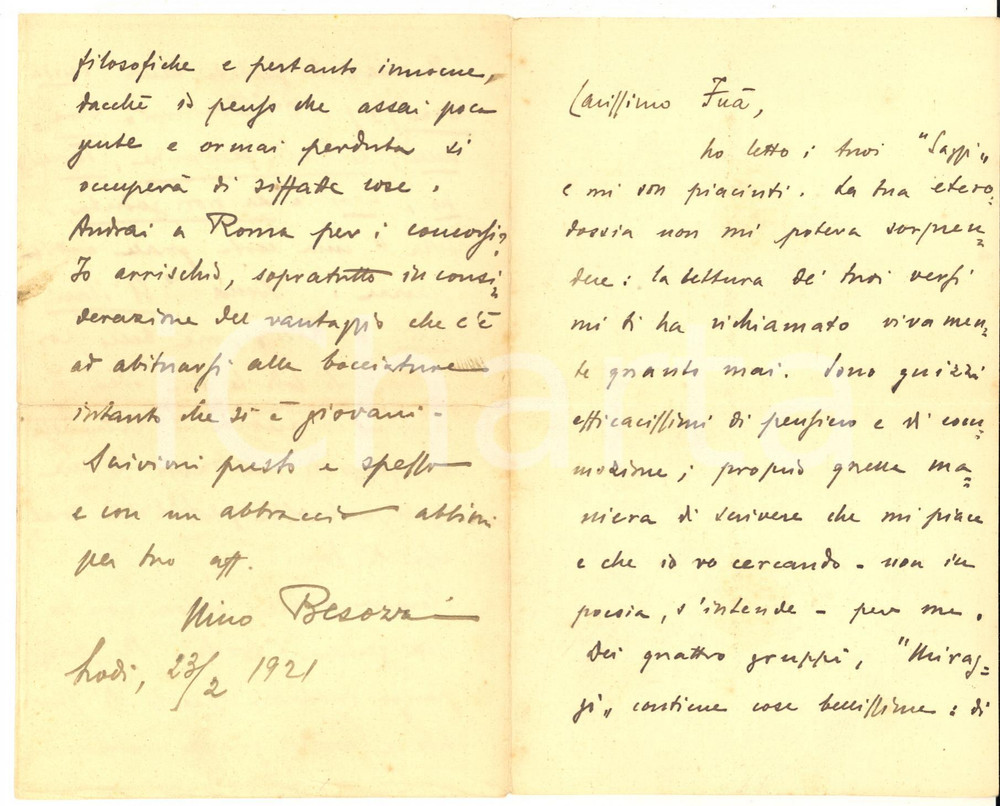 Carissimo Fuà,
ho letto i tuoi "Saggi"
e mi son piaciuti. La tua etero=
dossia non mi poteva sorpren=
dere: la lettura de' tuoi versi
mi ti ha richiamato vivamen=
te quanto mai. Sono guizzi
efficacissimi di pensiero e di com=
mozione; proprio quella ma=
niera di scrivere che mi piace
e che io vo cercando - non in
poesia, s'intende - per me.
Dei quattro gruppi, "Mirag=
gi" contiene cose bellissime: di
filosofiche e pertanto innocue,
dacchè io penso che assai poca
gente e ormai perduta si
occuperà di siffatte cose.
Andrai a Roma per i concorsi?
Io arrischio, sopratutto in consi=
derazione del vantaggio che c'è
ad abituarsi alle bocciature
intanto che si è giovani -
Scrivimi presto e spesso
e con un abbraccio abbimi
per tuo aff.
Nino Besozzi
Lodi, 23/2 1921
iCharta